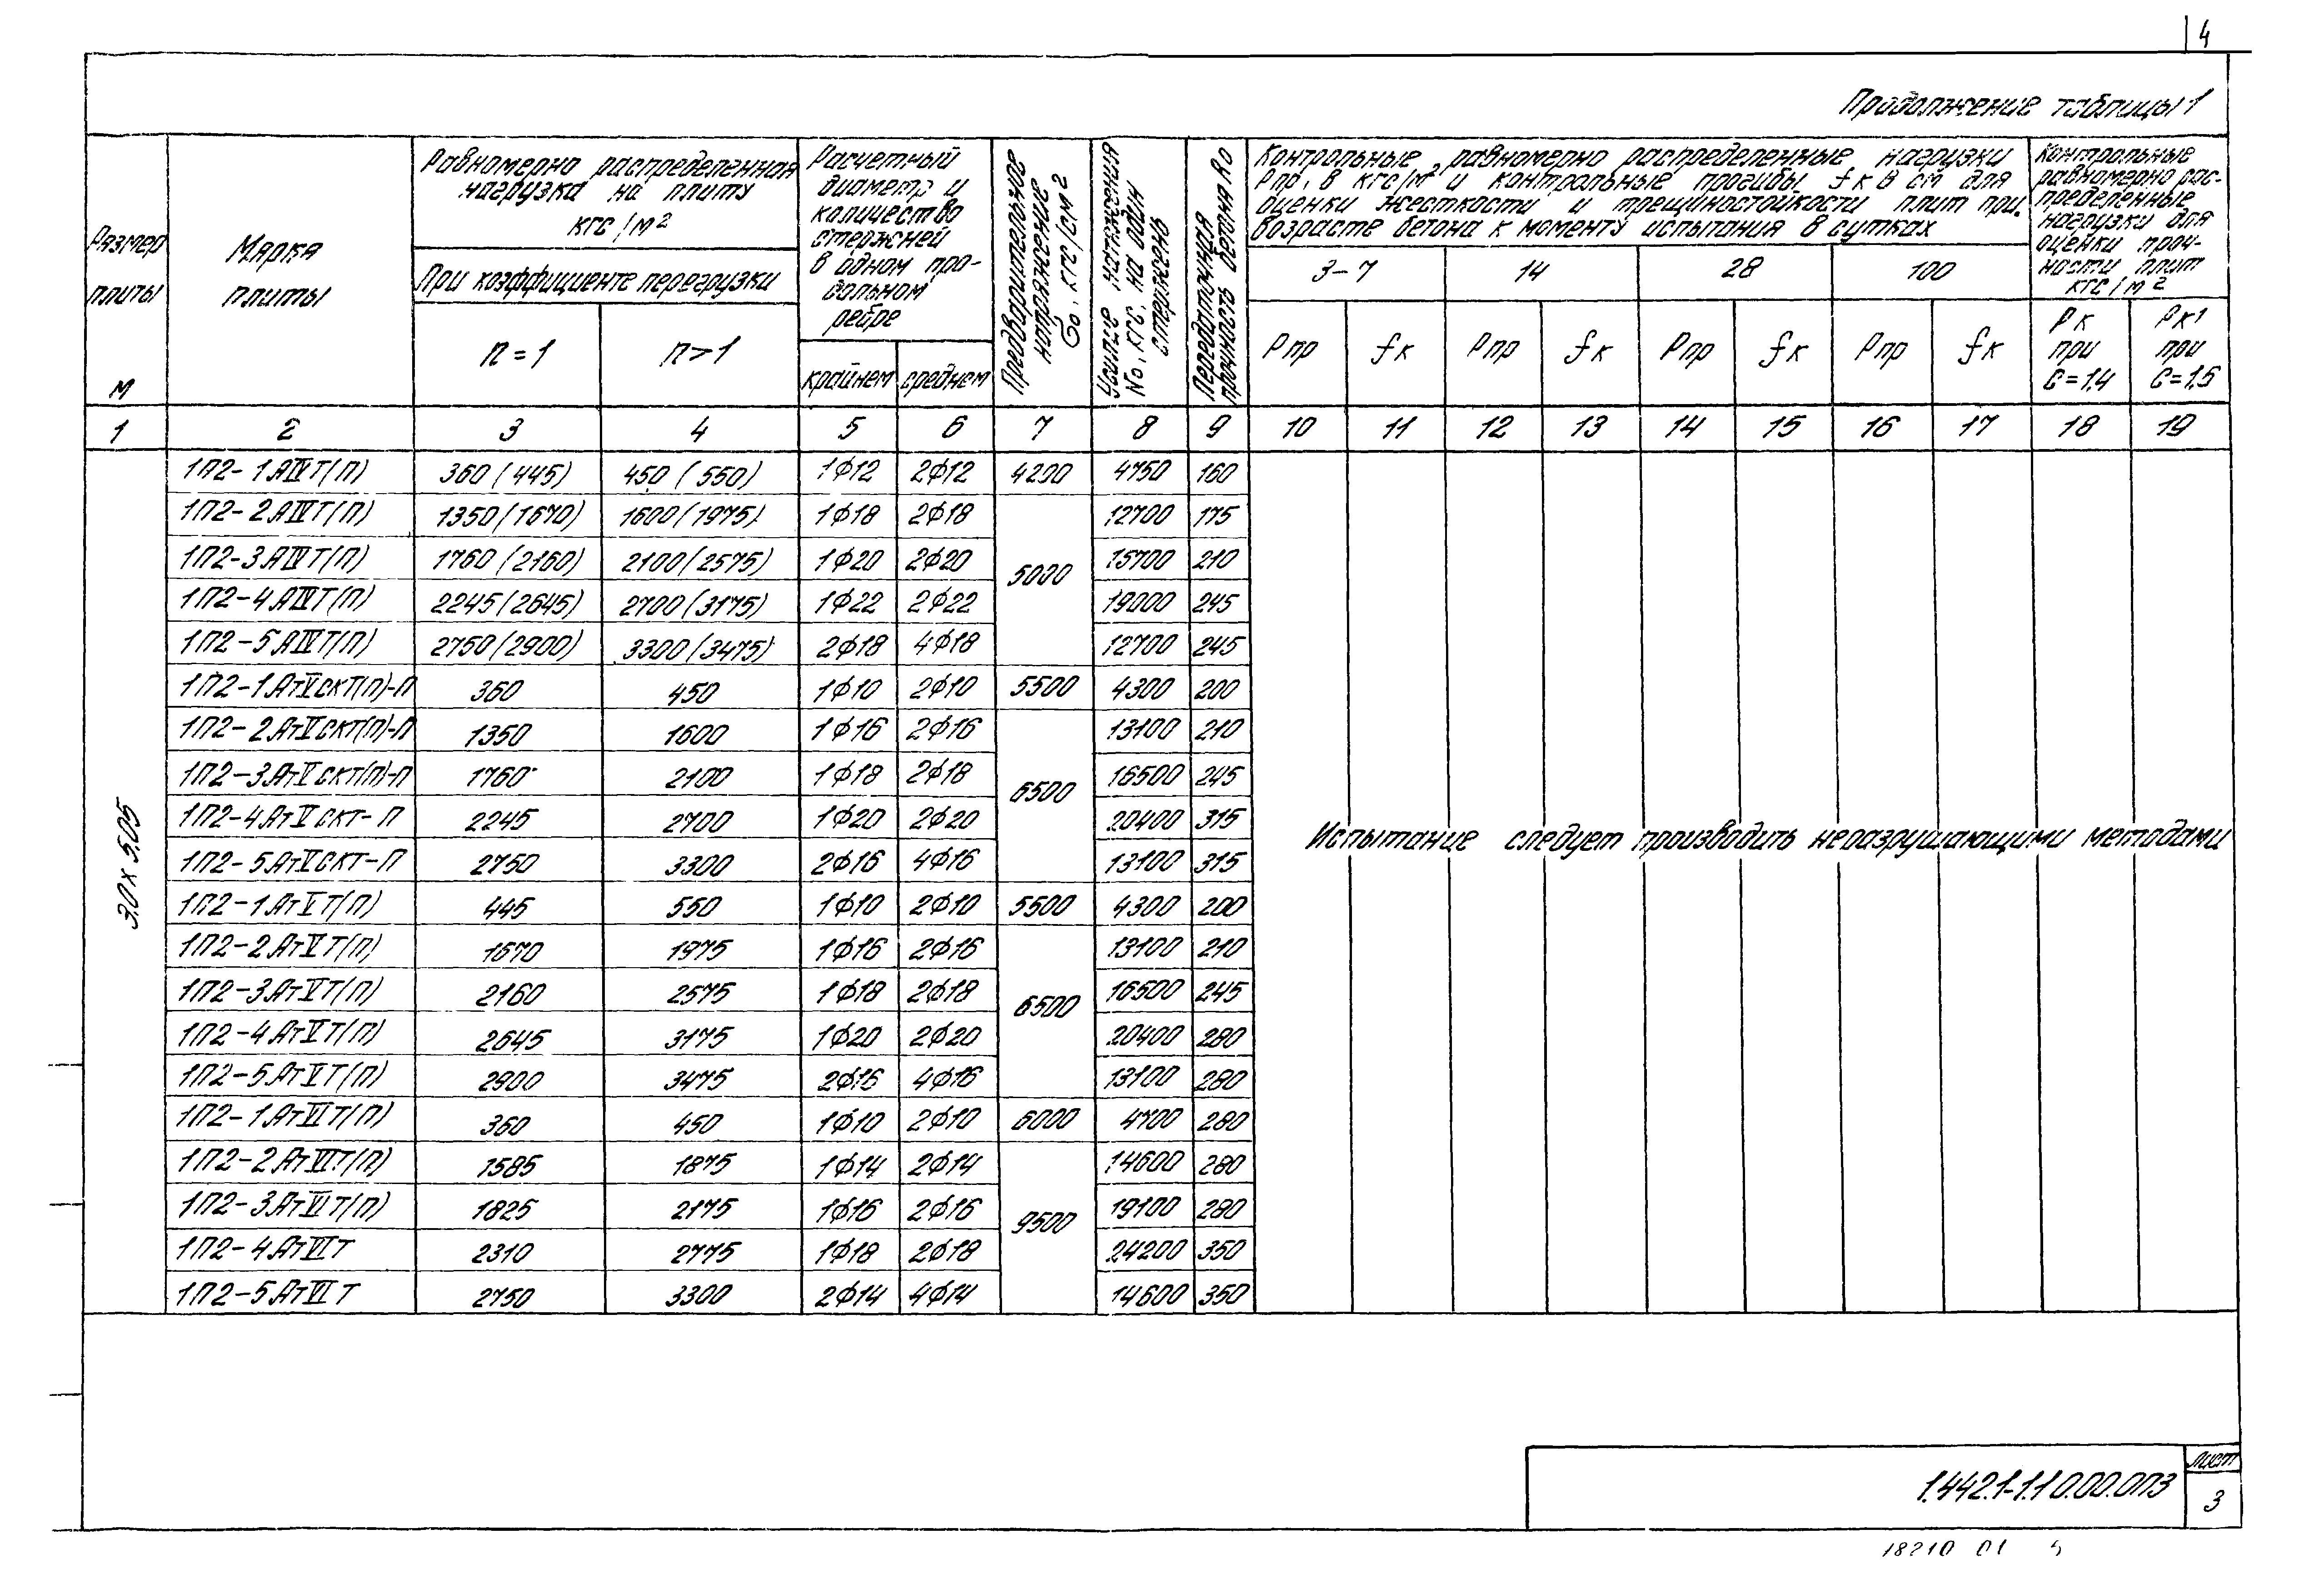 4
Продолжение таблицы 1
Размер плиты м
Марка плиты
Равномерно распределенная нагрузка на плиту кгс/м²
При коэффициенте перегрузки
n = 1
n > 1
Расчетный диаметр и количество стержней в одном продольном ребре
крайнем
среднем
Предварительное напряжение σо, кгс/см²
Усилие натяжения Nо, кгс, на один стержень
Передаточная прочность бетона Rо
Контрольные равномерно распределенные нагрузки
Рпр, в кгс/м² и контрольные прогибы fк в см для
оценки жесткости и трещиностойкости плит при
возрасте бетона к моменту испытания в сутках
3-7 14 28 100
Рпр fк Рпр fк Рпр fк Рпр fк
Контрольные равномерно распределенные нагрузки для оценки прочности плит кгс/м²
Рк при С=1,4
Рк1 при С=1,5
1 2 3 4 5 6 7 8 9 10 11 12 13 14 15 16 17 18 19
3.0 х 5.05
1П2-1АIVТ(П) 360 (445) 450 (550) 1Ф12 2Ф12 4200 4750 160
1П2-2АIVТ(П) 1350 (1670) 1600 (1975) 1Ф18 2Ф18 12700 175
1П2-3АIVТ(П) 1760 (2160) 2100 (2575) 1Ф20 2Ф20 5000 15700 210
1П2-4АIVТ(П) 2245 (2645) 2700 (3175) 1Ф22 2Ф22 19000 245
1П2-5АIVТ(П) 2750 (2900) 3300 (3475) 2Ф18 4Ф18 12700 245
1П2-1АтVСКТ(П)-П 360 450 1Ф10 2Ф10 5500 4300 200
1П2-2АтVСКТ(П)-П 1350 1600 1Ф16 2Ф16 13100 210
1П2-3АтVСКТ(П)-П 1760 2100 1Ф18 2Ф18 6500 16500 245
1П2-4АтVСКТ-П 2245 2700 1Ф20 2Ф20 20400 315
Испытание следует производить неразрушающими методами
1П2-5АтVСКТ-П 2750 3300 2Ф16 4Ф16 13100 315
1П2-1АтVТ(П) 445 550 1Ф10 2Ф10 5500 4300 200
1П2-2АтVТ(П) 1670 1975 1Ф16 2Ф16 13100 210
1П2-3АтVТ(П) 2160 2575 1Ф18 2Ф18 6500 16500 245
1П2-4АтVТ(П) 2645 3175 1Ф20 2Ф20 20400 280
1П2-5АтVТ(П) 2900 3475 2Ф16 4Ф16 13100 280
1П2-1АтVIТ(П) 360 450 1Ф10 2Ф10 6000 4700 280
1П2-2АтVIТ(П) 1585 1875 1Ф14 2Ф14 14600 280
1П2-3АтVIТ(П) 1825 2175 1Ф16 2Ф16 9500 19100 280
1П2-4АтVIТ 2310 2775 1Ф18 2Ф18 24200 350
1П2-5АтVIТ 2750 3300 2Ф14 4Ф14 14600 350
1.442.1-1.1 0.00.0ПЗ
Лист
3
18210 01 5